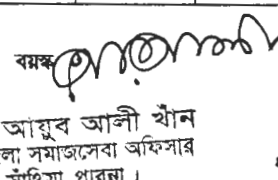 বয়স্ক
আয়ুব আলী খাঁন
লা সমাজসেবা অফিসার
সাঁথিয়া পাবনা।